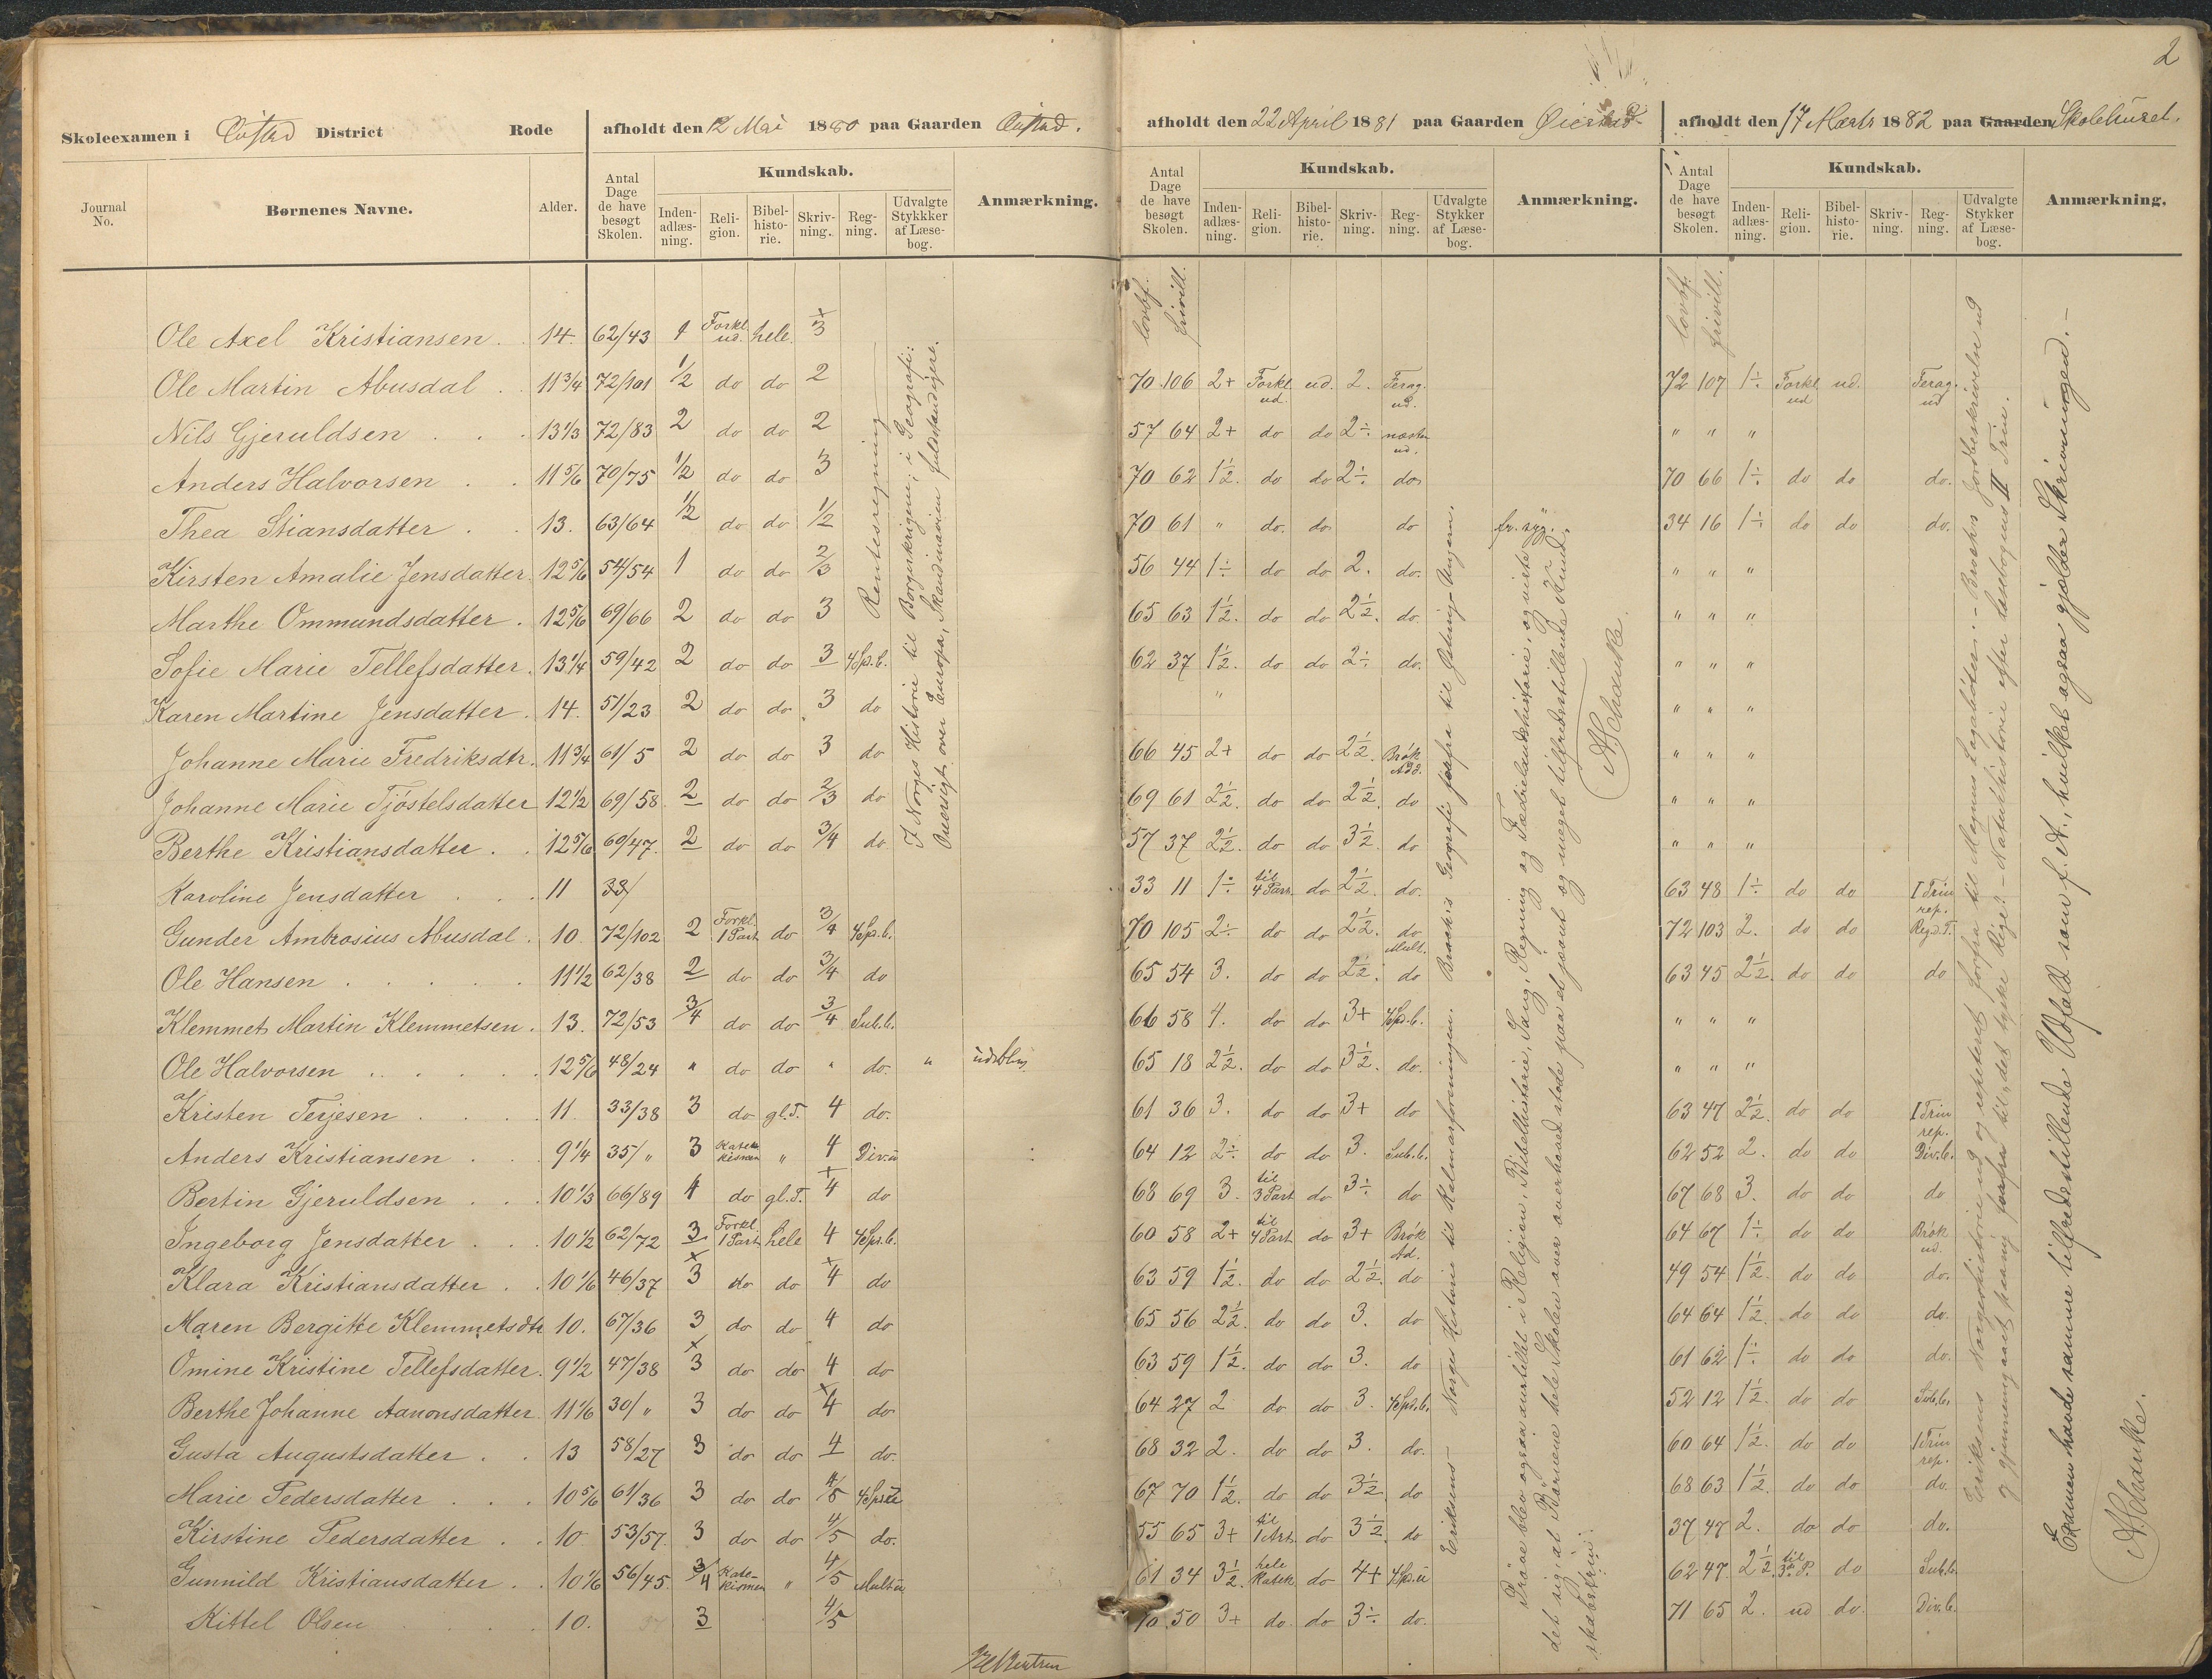 2
Skoleexamen i Øistad District Rode afholdt den 12 Mai 1880 paa Gaarden Øistad.
afholdt den 22 April 1881 paa Gaarden Øiestad
afholdt den 17 Marts 1882 paa Gaarden Skolehuset.
Journal No. Børnenes Navne. Alder. Antal Dage de have besøgt Skolen. Kundskab. Inden-adlæs-ning. Reli-gion. Bibel-histo-rie. Skriv-ning. Reg-ning. Udvalgte Stykkker af Læse-bog. Anmærkning.
Antal Dage de have besøgt Skolen. Kundskab. Inden-adlæs-ning. Reli-gion. Bibel-histo-rie. Skriv-ning. Reg-ning. Udvalgte Stykker af Læse-bog. Anmærkning.
Antal Dage de have besøgt Skolen. Kundskab. Inden-adlæs-ning. Reli-gion. Bibel-histo-rie. Skriv-ning. Reg-ning. Udvalgte Stykker af Læse-bog. Anmærkning.
lovbf. frivill. lovbf. frivill.
Ole Axel Kristiansen 14. 62/43 Forkl. ud. hele 3
Ole Martin Abusdal 11 3/4 72/101 1/2 do do 2 70 106 2+ Forkl. ud. ud. 2. Ferag. ud. 72 107 1÷ Forkl. ud ud. Ferag. ud
Nils Gjeruldsen 13 1/3 72/83 2 do do 2 57 64 2+ do do 2÷ næsten ud. " " "
Anders Halvorsen 11 5/6 70/75 1/2 do do 3 70 62 1 1/2. do do 2÷ do 70 66 1÷ do do do.
Thea Stiansdatter 13. 63/64 1/2 do do 1/2 70 61 " do. do. do fr. syg. 34 16 1÷ do do do.
Kirsten Amalie Jensdatter 12 5/6 54/54 1 do do 2/3 56 44 1÷ do do 2. do. " " "
Marthe Ommundsdatter. 12 5/6 69/66 2 do do 3 65 63 1 1/2. do do 2 1/2. do. " " "
Sofie Marie Tellefsdatter. 13 1/4 59/42 2 do do 3 4 Sp. b. 62 37 1 1/2. do do 2÷ do. " " "
Karen Martine Jensdatter. 14. 51/23 2 do do 3 do " " " "
Johanne Marie Fredriksdtr. 11 3/4 61/5 2 do do 3 do 66 45 2+ do do 2 1/2. Brøk Add. " " "
Johanne Marie Tjøstelsdatter 12 1/2 69/58 2 do do 2/3 do 69 61 2 1/2. do do 2 1/2. do " " "
Berthe Kristiansdatter 12 5/6 60/47. 2 do do 3/4 do 57 37 2 1/2. do do 3 1/2. do " " "
Karoline Jensdatter 11 33/ 33 11 1÷ til 4 Part. do 2 1/2 do. 63 48 1÷ do do I Trin rep.
Gunder Ambrosius Abusdal. 10. 72/102 2 Forkl. 1 Part do 3/4 4 Sp. b. 70 105 2÷ do do 2 1/2. do Mult. 72 103 2. do do
Ole Hansen 11 1/2 62/38 2 do do 3/4 do 65 54 3. do do 2 1/2. do 63 45 2 1/2. do do do
Klemmet Martin Klemmetsen. 13. 72/53 3/4 do do 3/4 Sub. b. 66 58 4. do do 3+ 4 Sp. b. " " "
Ole Halvorsen 12 5/6 48/24 " do do " do. " udebl. 65 18 2 1/2. do do 3 1/2. do. " " "
Kristen Terjesen 11. 33/38 3 do gl. T. 4 do. 61 36 3. do do 3+ do 63 47 2 1/2 do do I Trin rep.
Anders Kristiansen 9 1/4 35/ " 3 Kate-kismen " 4 Div. u 64 12 2÷ do do 3. Sub. b. 62 52 2. do do Div. b.
Bertin Gjeruldsen 10 1/3 66/89 4 do gl. T. 4 do 68 69 3. til 3 Part do 3÷ do 67 68 3. do do do
Ingeborg Jensdatter 10 1/2 62/72 3 Forkl. 1 Part hele 4 4 Sp. b. 60 58 2+ til 4 Part do 3+ Brøk Ad. 64 67 1÷ do do Brøk ud.
Klara Kristiansdatter 10 1/6 46/37 3 do do 4 do 63 59 1 1/2. do do 2 1/2. do 49 54 1 1/2. do do do.
Maren Bergitte Klemmetsdtr 10. 67/36 3 do do 4 do 65 56 2 1/2. do do 3. do 64 64 1 1/2. do do do.
Omine Kristine Tellefsdatter. 9 1/2 47/38 3 do do 4 do 63 59 1 1/2. do do 3. do 61 62 1÷ do do do.
Berthe Johanne Aanonsdatter 11 1/6 30/ " 3 do do 4 do 64 27 2 do do 3. 4 Sp. b. 52 12 1 1/2. do do Sub. b.
Gusta Augustsdatter 13 58/27 3 do do 4 do. 68 32 2. do do 3. do. 60 64 1 1/2. do do I Trin rep.
Marie Pedersdatter 10 5/6 61/36 3 do do 4/5 4 Sp. u 67 70 1 1/2. do do 3 1/2. do 68 63 1 1/2. do do do.
Kirstine Pedersdatter 10 53/57. 3 do do 4/5 do. 55 65 3+ til 1 Art. do 3 1/2. do 37 47 2. do do do.
Gunnild Kristiansdatter 10 1/6 56/45. 3/4 Kate-kismen " 4/5 Mult. u 61 34 3 1/2. hele Katek. do 4+ 4 Sp. u 62 47 2 1/2. til 3. P. do Sub. b.
Kittel Olsen 10. 3 4/5 70 50 3+ do. do 3÷ do. 71 65 2. ud do. Div. b.
Rentesregning
I Norges Historie til Borgerkrigene; i Geografi:
Oversigt over Europa, Skandinavien fuldstændigere.
Eriksens Norges Historie til Kalmarforeningen. Brochs Geografi forfra til Østrig-Ungarn.
Prøve blev ogsaa anstillet i Religion, Bibelhistorie, Sang, Regning og Fædrelandshistorie, og viste
det sig, at Børnene hele Skolen over overhoved stode paa et jævnt og meget tilfredsstillende Kund-
skabstrin.
A Schanke.
Eriksens Norgeshistorie ud og repeteret forfra til Magnus Lagabøter. - Brochs Jordbeskrivelse ud
og gjennemgaaet paany forfra til "det tyske Rige". - Naturhistorie efter Læsebogens II Trin.
Examen havde samme tilfredsstillende Udfald som f. A., hvilket ogsaa gjælder Skrivningen. -
A Schanke.